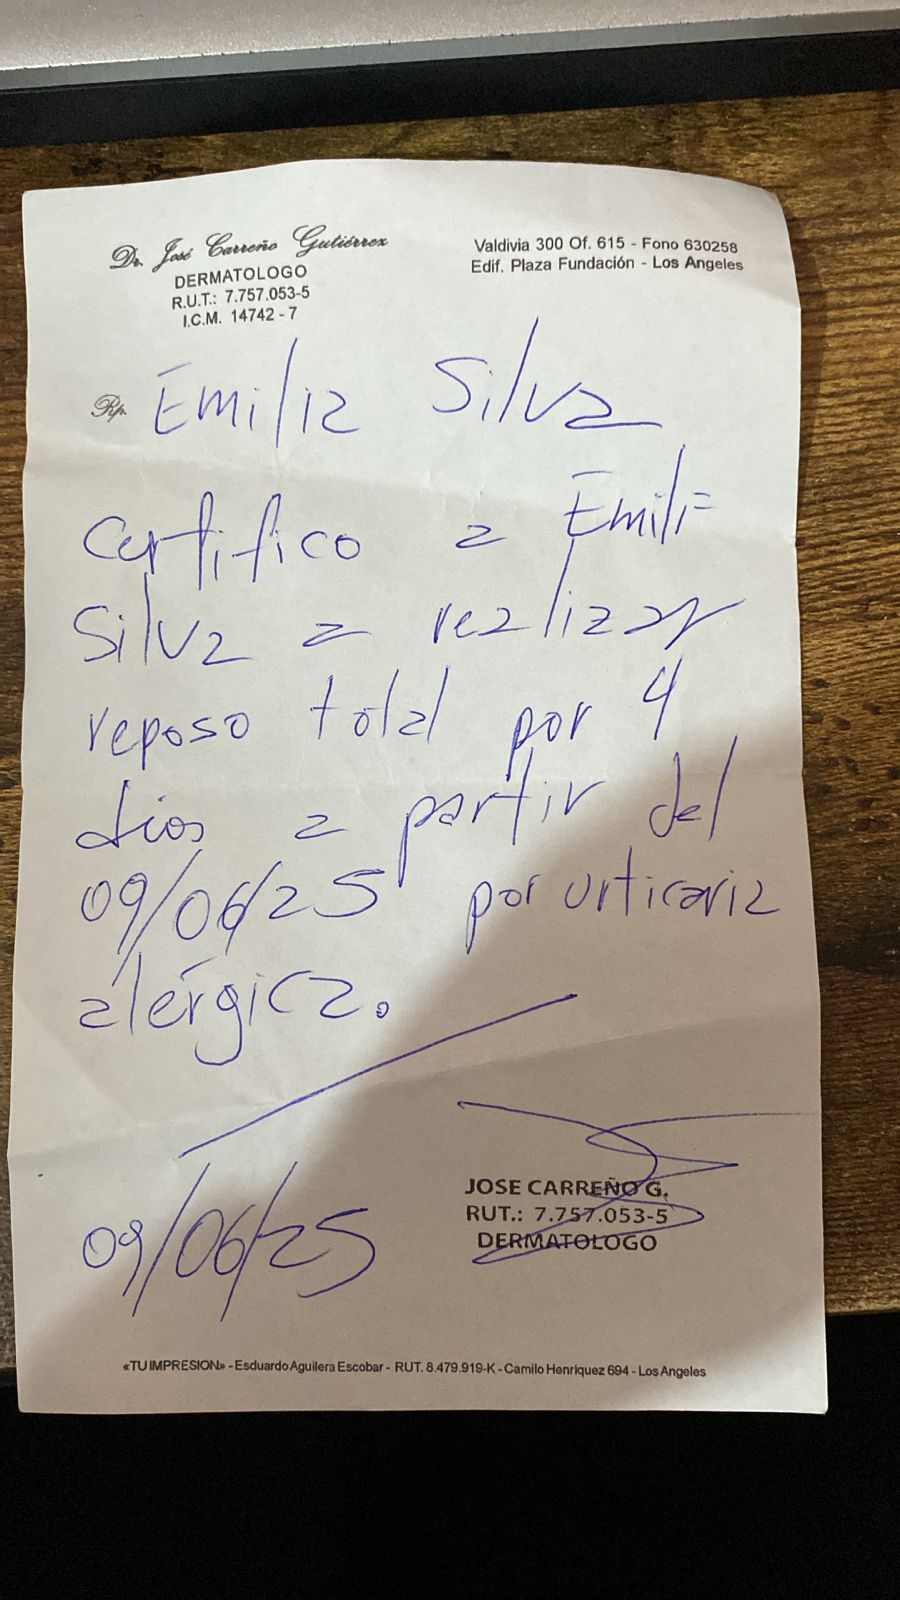 Dr. José Carreño Gutiérrez
DERMATOLOGO
R.U.T.: 7.757.053-5
I.C.M. 14742 - 7
Valdivia 300 Of. 615 - Fono 630258
Edif. Plaza Fundación - Los Angeles
Rp. Emilia Silva
Certifico a Emili
Silva a realizar
reposo total por 4
días a partir del
09/06/25 por urticaria
alérgica.
09/06/25
JOSE CARREÑO G.
RUT.: 7.757.053-5
DERMATOLOGO
«TU IMPRESION» - Esduardo Aguilera Escobar - RUT. 8.479.919-K - Camilo Henriquez 694 - Los Angeles